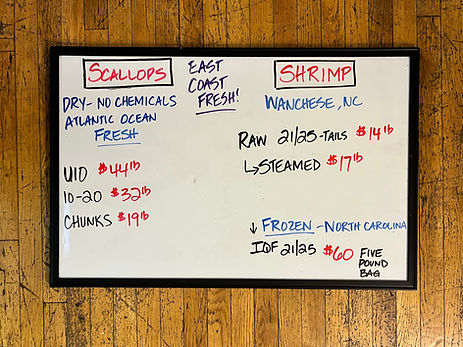 SCALLOPS
DRY-NO CHEMICALS
ATLANTIC OCEAN
FRESH
U10 $44lb
10-20 $32lb
CHUNKS $19lb
EAST
COAST
FRESH!
SHRIMP
WANCHESE, NC
RAW 21/25-TAILS $14lb
↳STEAMED $17lb
↓ FROZEN -NORTH CAROLINA
IQF 21/25 $60 FIVE
POUND
BAG